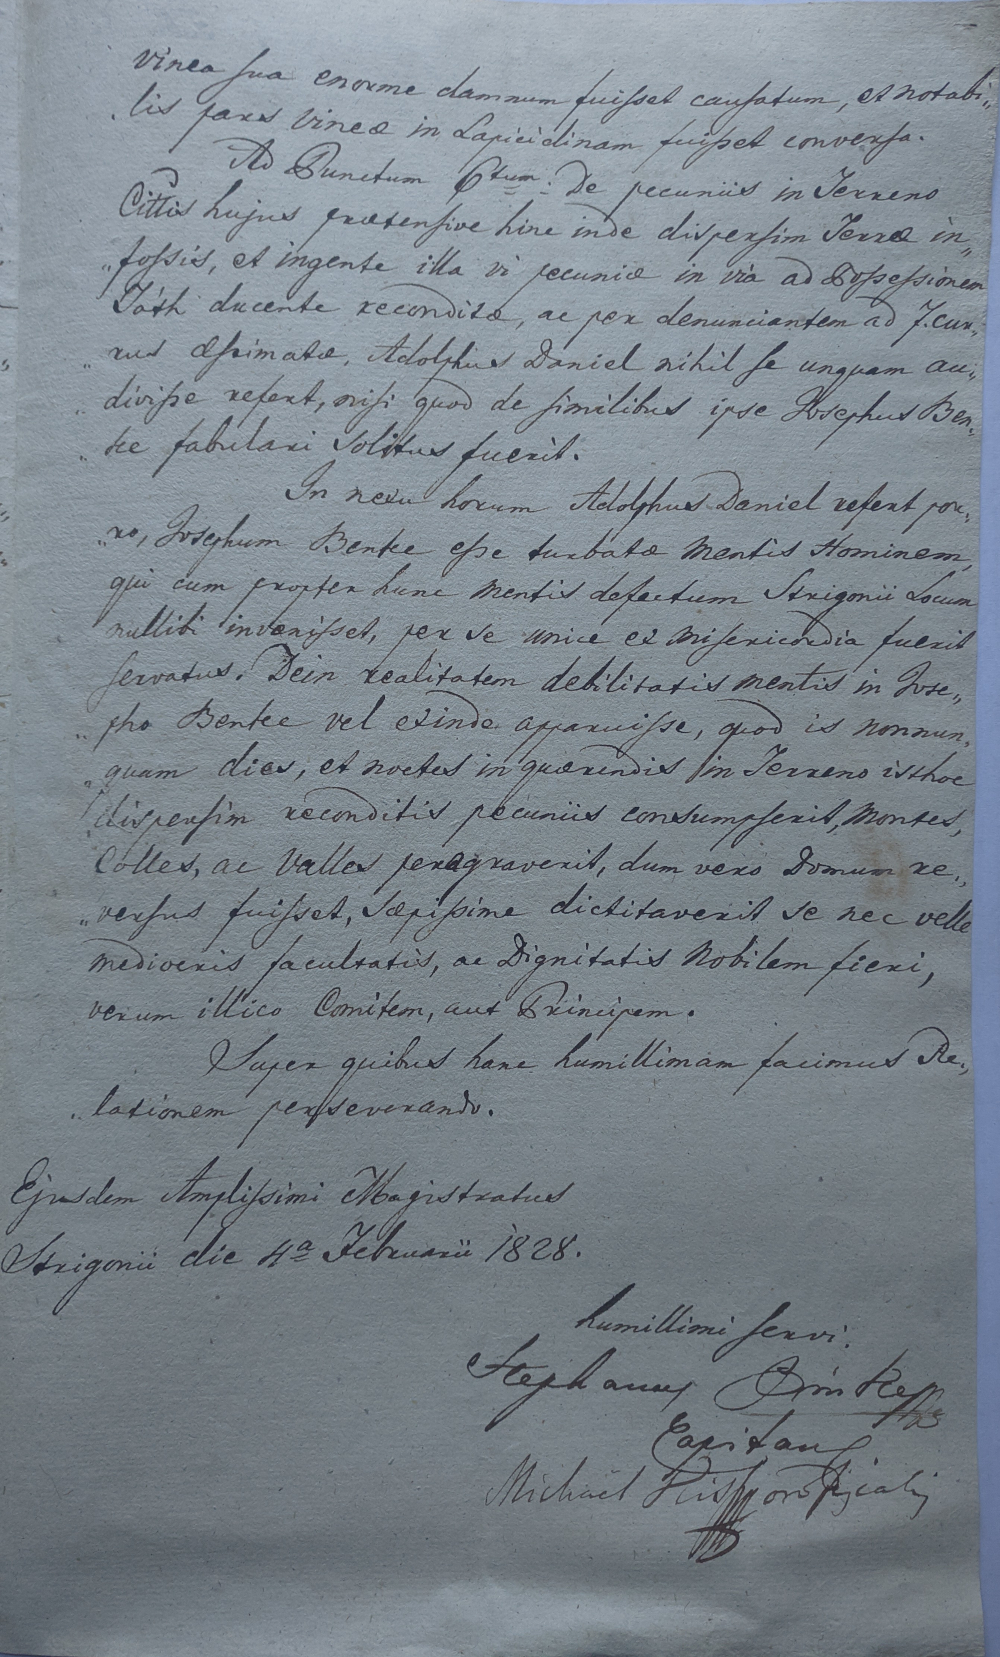 vinea sua enorme damnum fuisset causatum, et notabi„
„lis pars Vineæ in Lapicidinam fuisset conversa.
Ad Punctum 6tum: De pecuniis in Terreno
Cittis hujus prætensive hinc inde dispersim Terræ in„
„fossis, et ingente illa vi pecuniæ in via ad Possessionem
Táth ducente reconditæ, ac per denunciantem ad 7. cur„
„rus æstimatæ, Adolphus Daniel nihil se unquam au„
„divisse refert, nisi quod de similibus ipse Josephus Ben„
„ke fabulari solitus fuerit.
In nexu horum Adolphus Daniel refert por„
„ro, Josephum Benke esse turbatæ Mentis Hominem,
qui cum propter hunc Mentis defectum Strigonii Locum
nullibi invenisset, per se unice ex Misericordia fuerit
servatus. Dein realitatem debilitatis mentis in Jose„
„pho Benke vel exinde apparuisse, quod is nonnun„
„quam dies, et noctes in quærendis in Terreno isthoc
dispersim reconditis pecuniis consumpserit, Montes,
Colles, ac Valles peragraverit, dum vero Domum re„
„versus fuisset, sæpissime dictitaverit se nec velle
mediocris facultatis, ac Dignitatis Nobilem fieri,
verum illico Comitem, aut Principem.
Super quibus hanc humillimam facimus Re„
„lationem perseverando.
Ejusdem Amplissimi Magistratus
Strigonii die 4a Februarii 1828.
humillimi servi.
Stephanus
Capitan
Michael